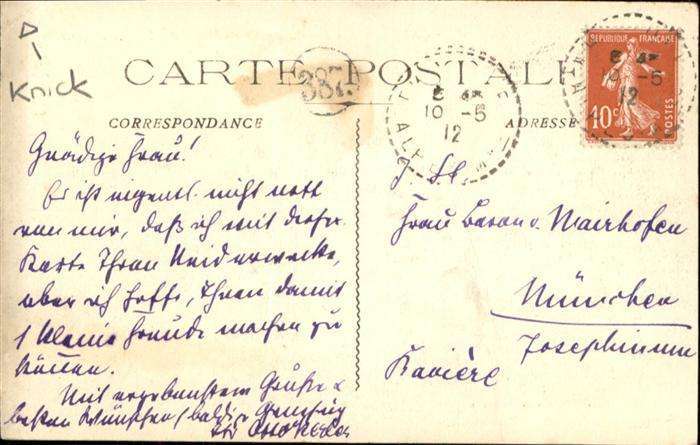 Knick
CARTE POSTALE
387.
CORRESPONDANCE
ADRESSE
REPUBLIQUE FRANÇAISE
10c
POSTES
10 -5
12
10 -5
12
Gnädige Frau!
Es ist eigentl. nicht nett
von mir, daß ich mit dieser
Karte Ihren Neid erwecke,
aber ich hoffe, Ihnen damit
1 kleine Freude machen zu
können.
Mit ergebenstem Gruße &
besten Wünschen
Ihr Otto
Frau Baron v. Mairhofen
München
Josephinum
Bavière